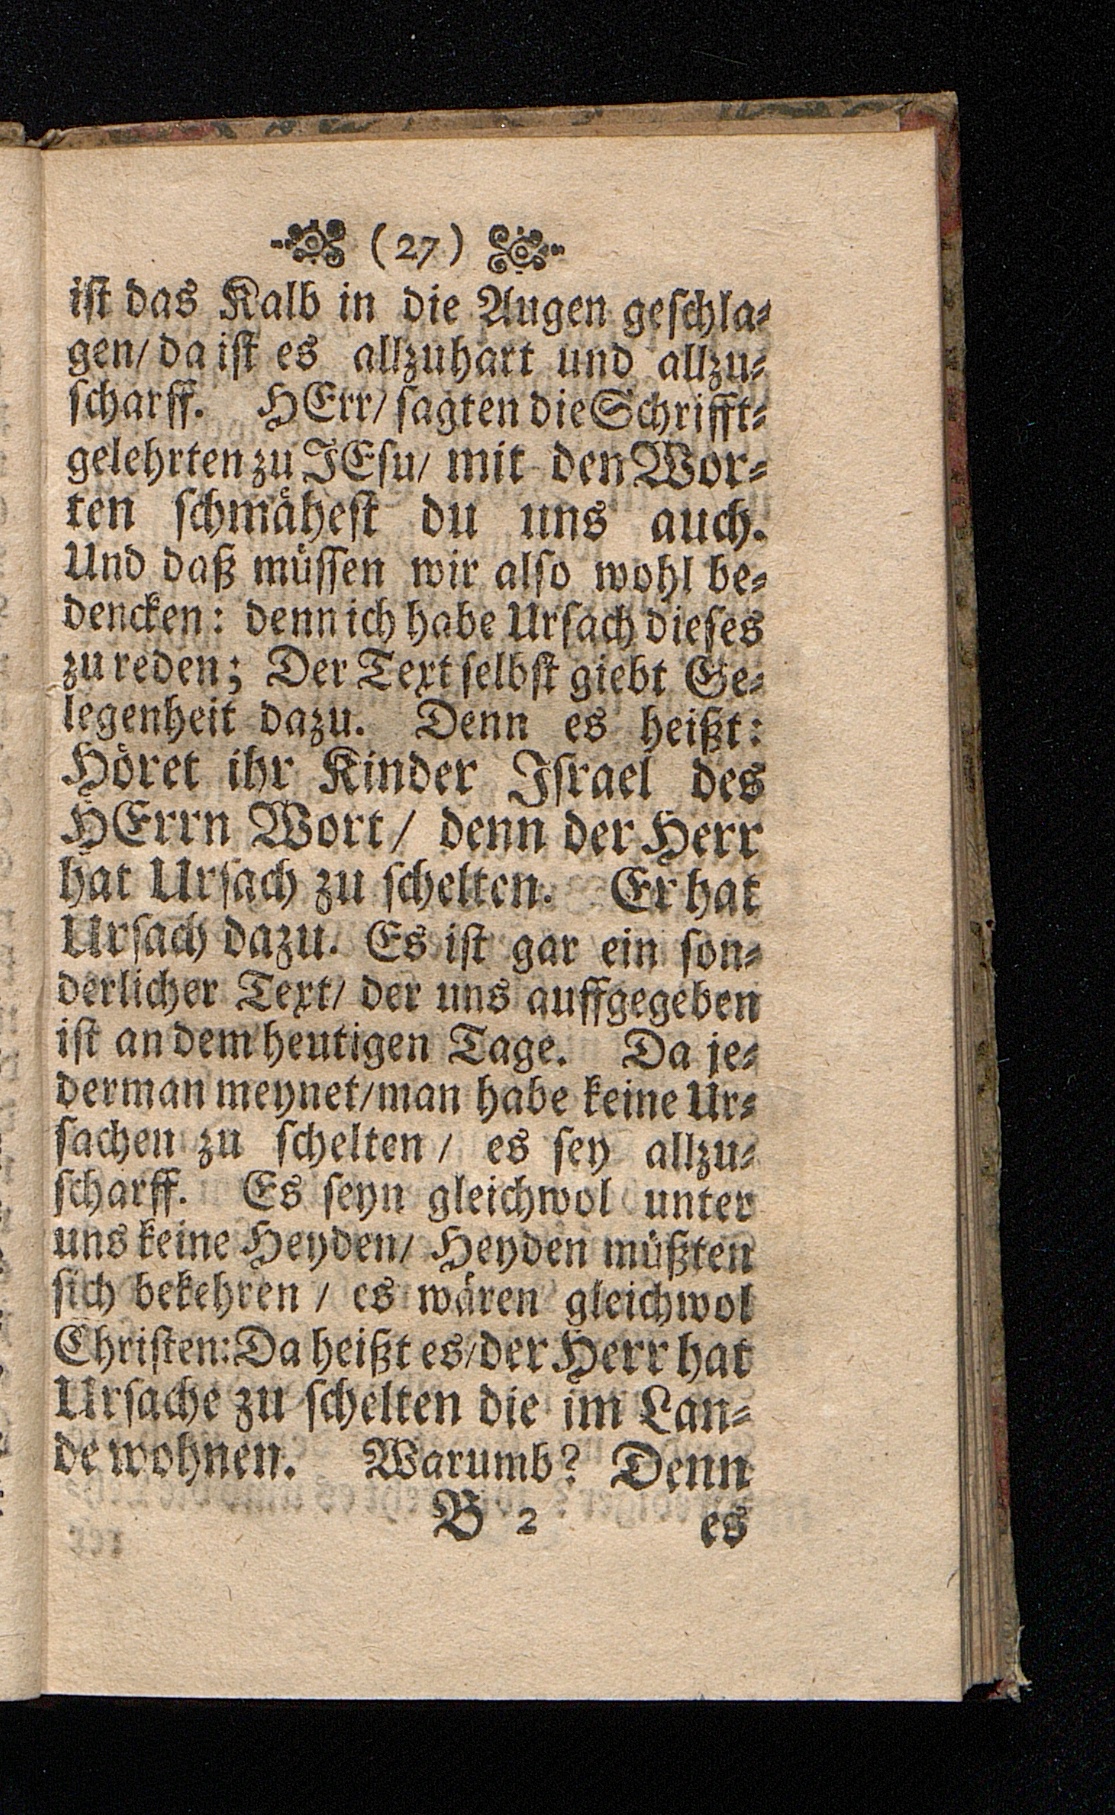 (27)
ist das Kalb in die Augen geschla-
gen/ da ist es allzuhart und allzu-
scharff. HErr/ sagten die Schrifft-
gelehrten zu JEsu/ mit den Wor-
ten schmähest du uns auch.
Und daß müssen wir also wohl be-
dencken: denn ich habe Ursach dieses
zu reden; Der Text selbst giebt Ge-
legenheit dazu. Denn es heißt:
Höret ihr Kinder Israel des
HErrn Wort/ denn der Herr
hat Ursach zu schelten. Er hat
Ursach dazu. Es ist gar ein son-
derlicher Text/ der uns auffgegeben
ist an dem heutigen Tage. Da je-
derman meynet/ man habe keine Ur-
sachen zu schelten/ es sey allzu-
scharff. Es seyn gleichwol unter
uns keine Heyden/ Heyden müßten
sich bekehren/ es wären gleichwol
Christen: Da heißt es/ der Herr hat
Ursache zu schelten die im Lan-
de wohnen. Warumb? Denn
B 2 es